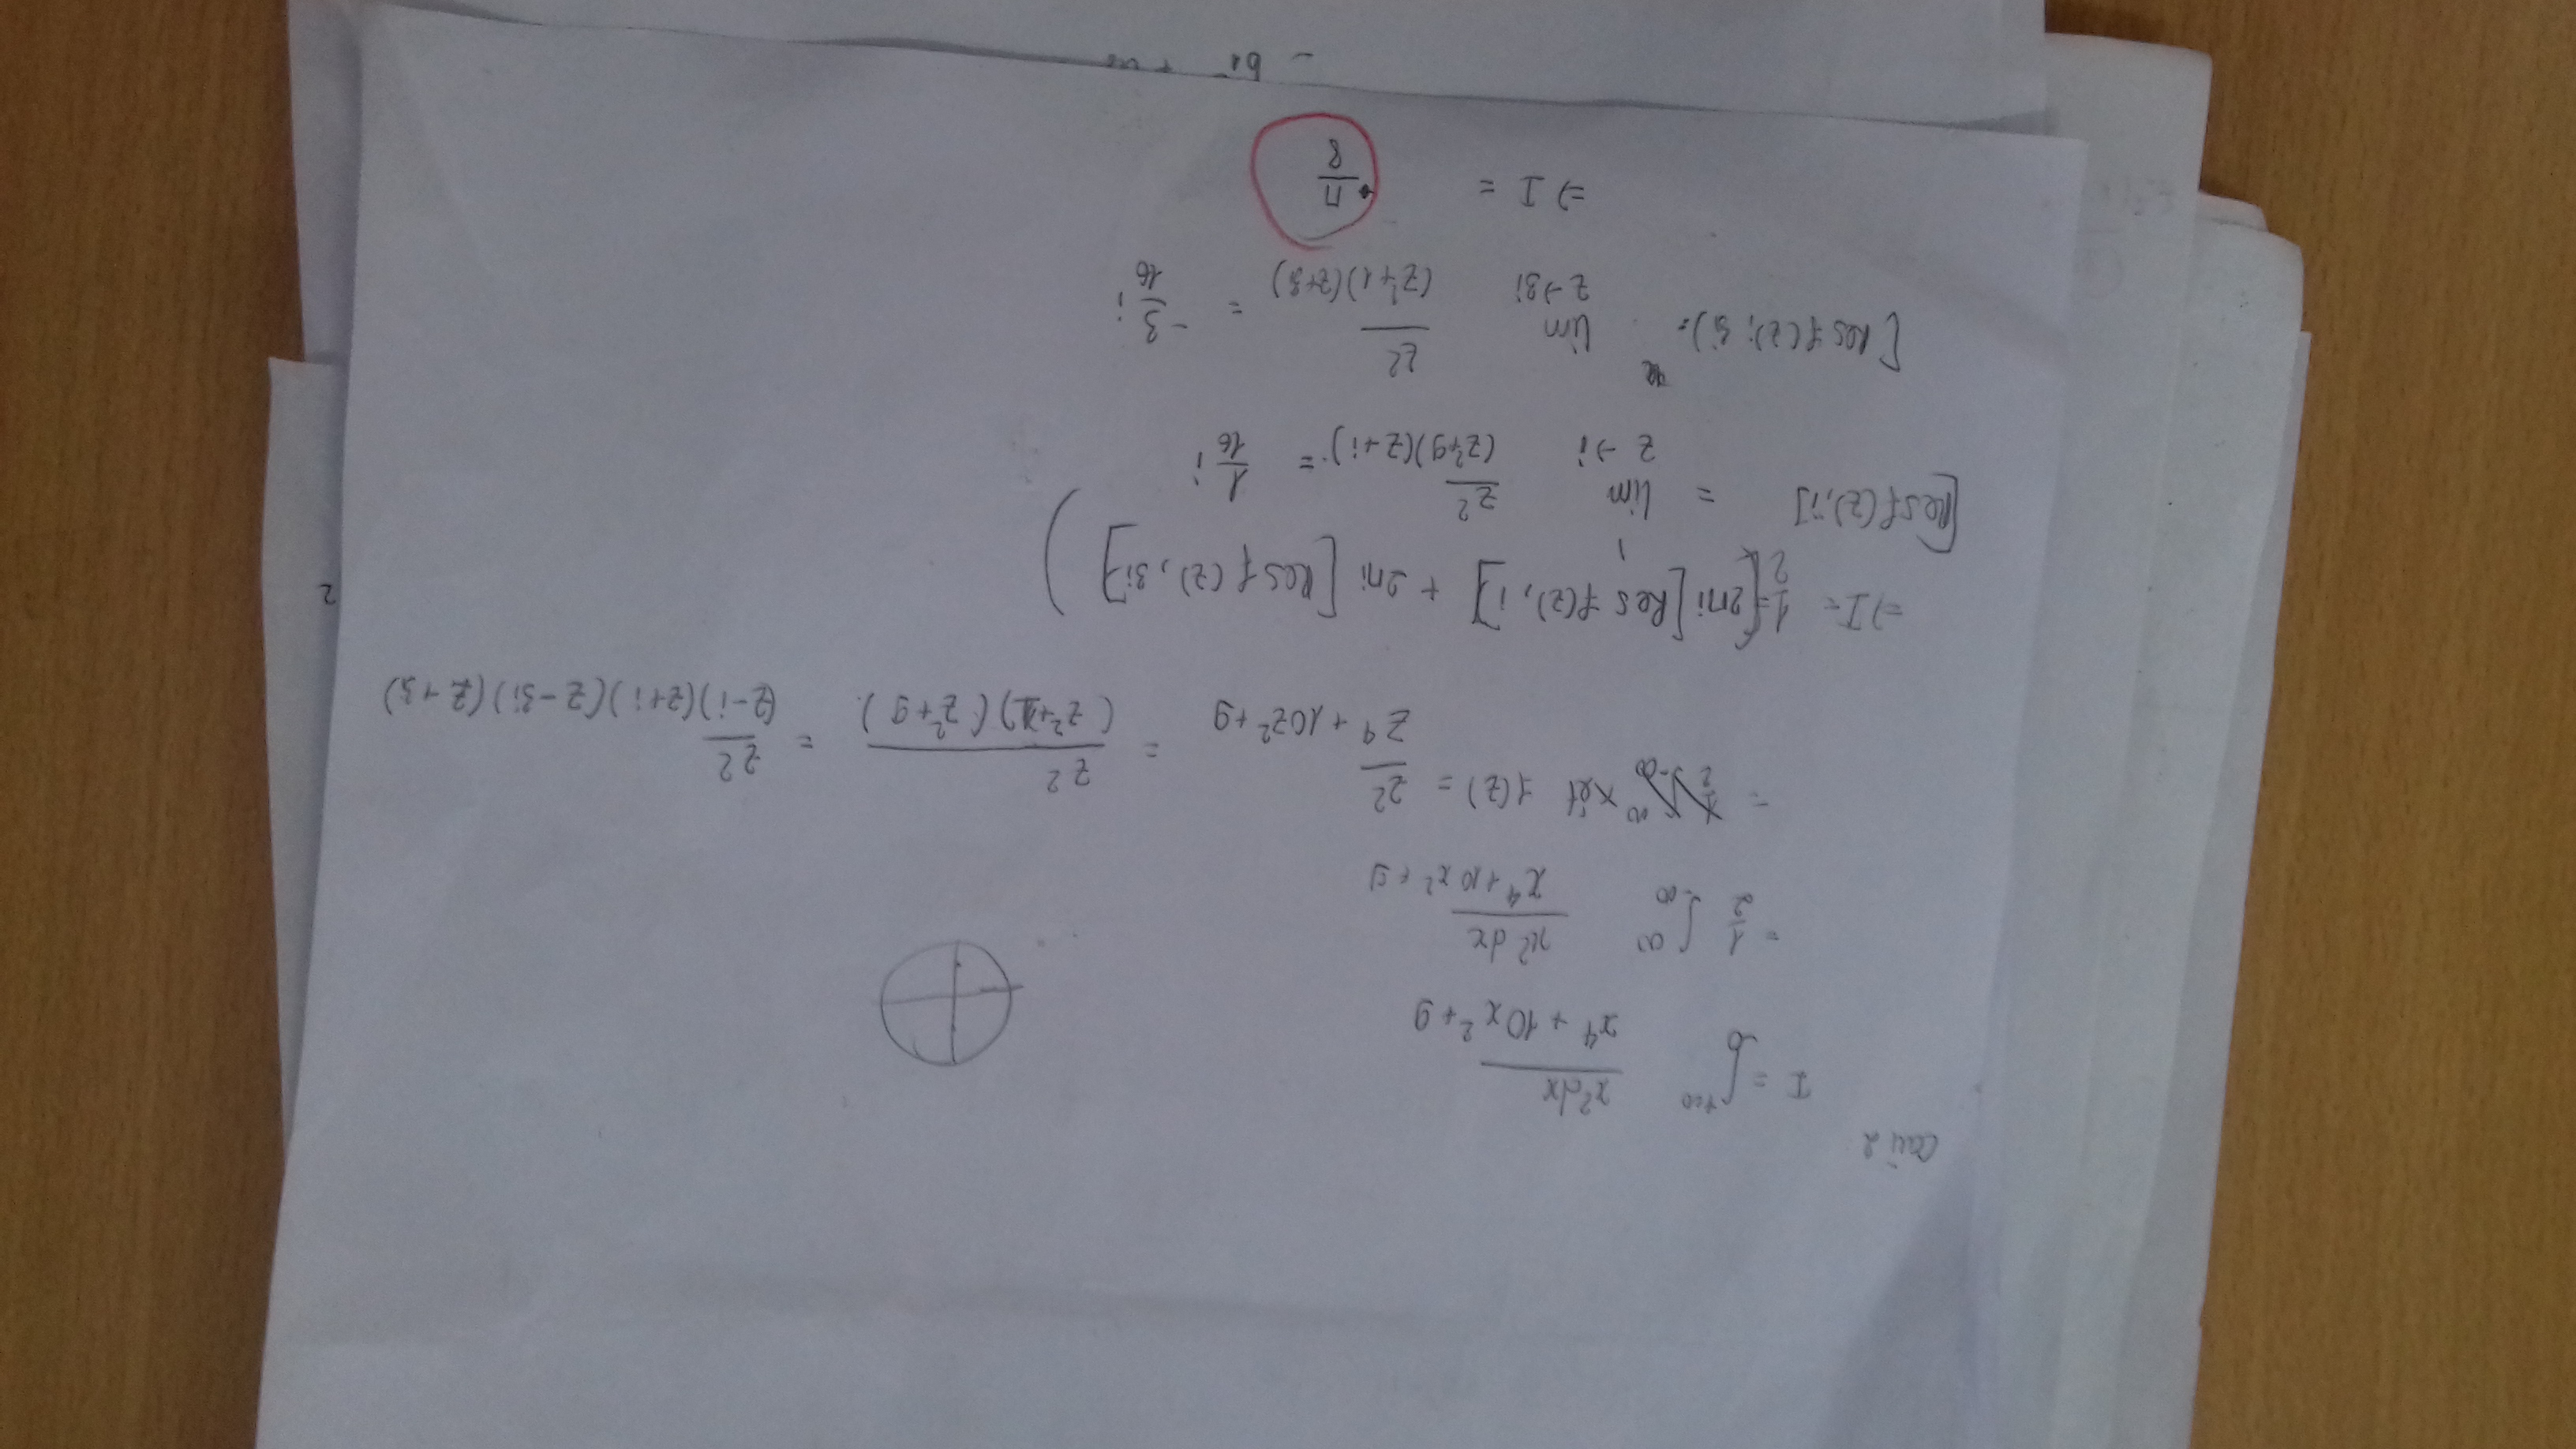 Câu 2
I = ∫₀^{+∞} x²dx / (x⁴ + 10x² + 9)
= 1/2 ∫_{-∞}^{∞} x²dx / (x⁴ + 10x² + 9)
= xét f(z) = z² / (z⁴ + 10z² + 9) = z² / ((z²+1)(z²+9)) = z² / ((z-i)(z+i)(z-3i)(z+3i))
=> I = 1/2 (2πi [Res f(z), i] + 2πi [Res f(z), 3i])
[Res f(z), i] = lim z→i z² / ((z²+9)(z+i)) = 1/16 i
[Res f(z); 3i] = lim z→3i z² / ((z²+1)(z+3i)) = -3/16 i
=> I = π/8
2